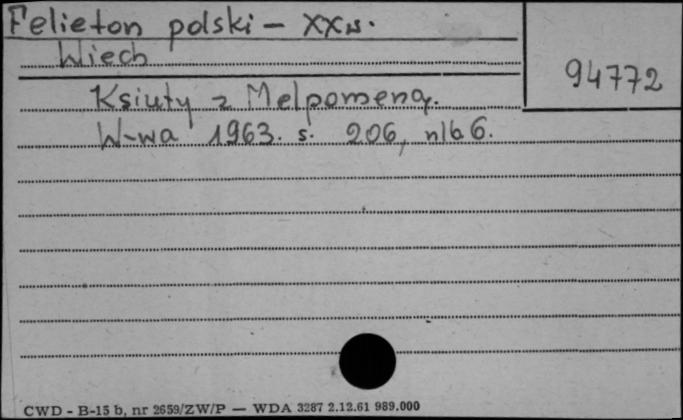 Felieton polski – XX w.
Wiech
94772
Ksiuty z Melpomeną.
W-wa 1963. s. 206, nlb 6.
CWD - B-15 b, nr 2659/ZW/P — WDA 3287 2.12.61 989.000